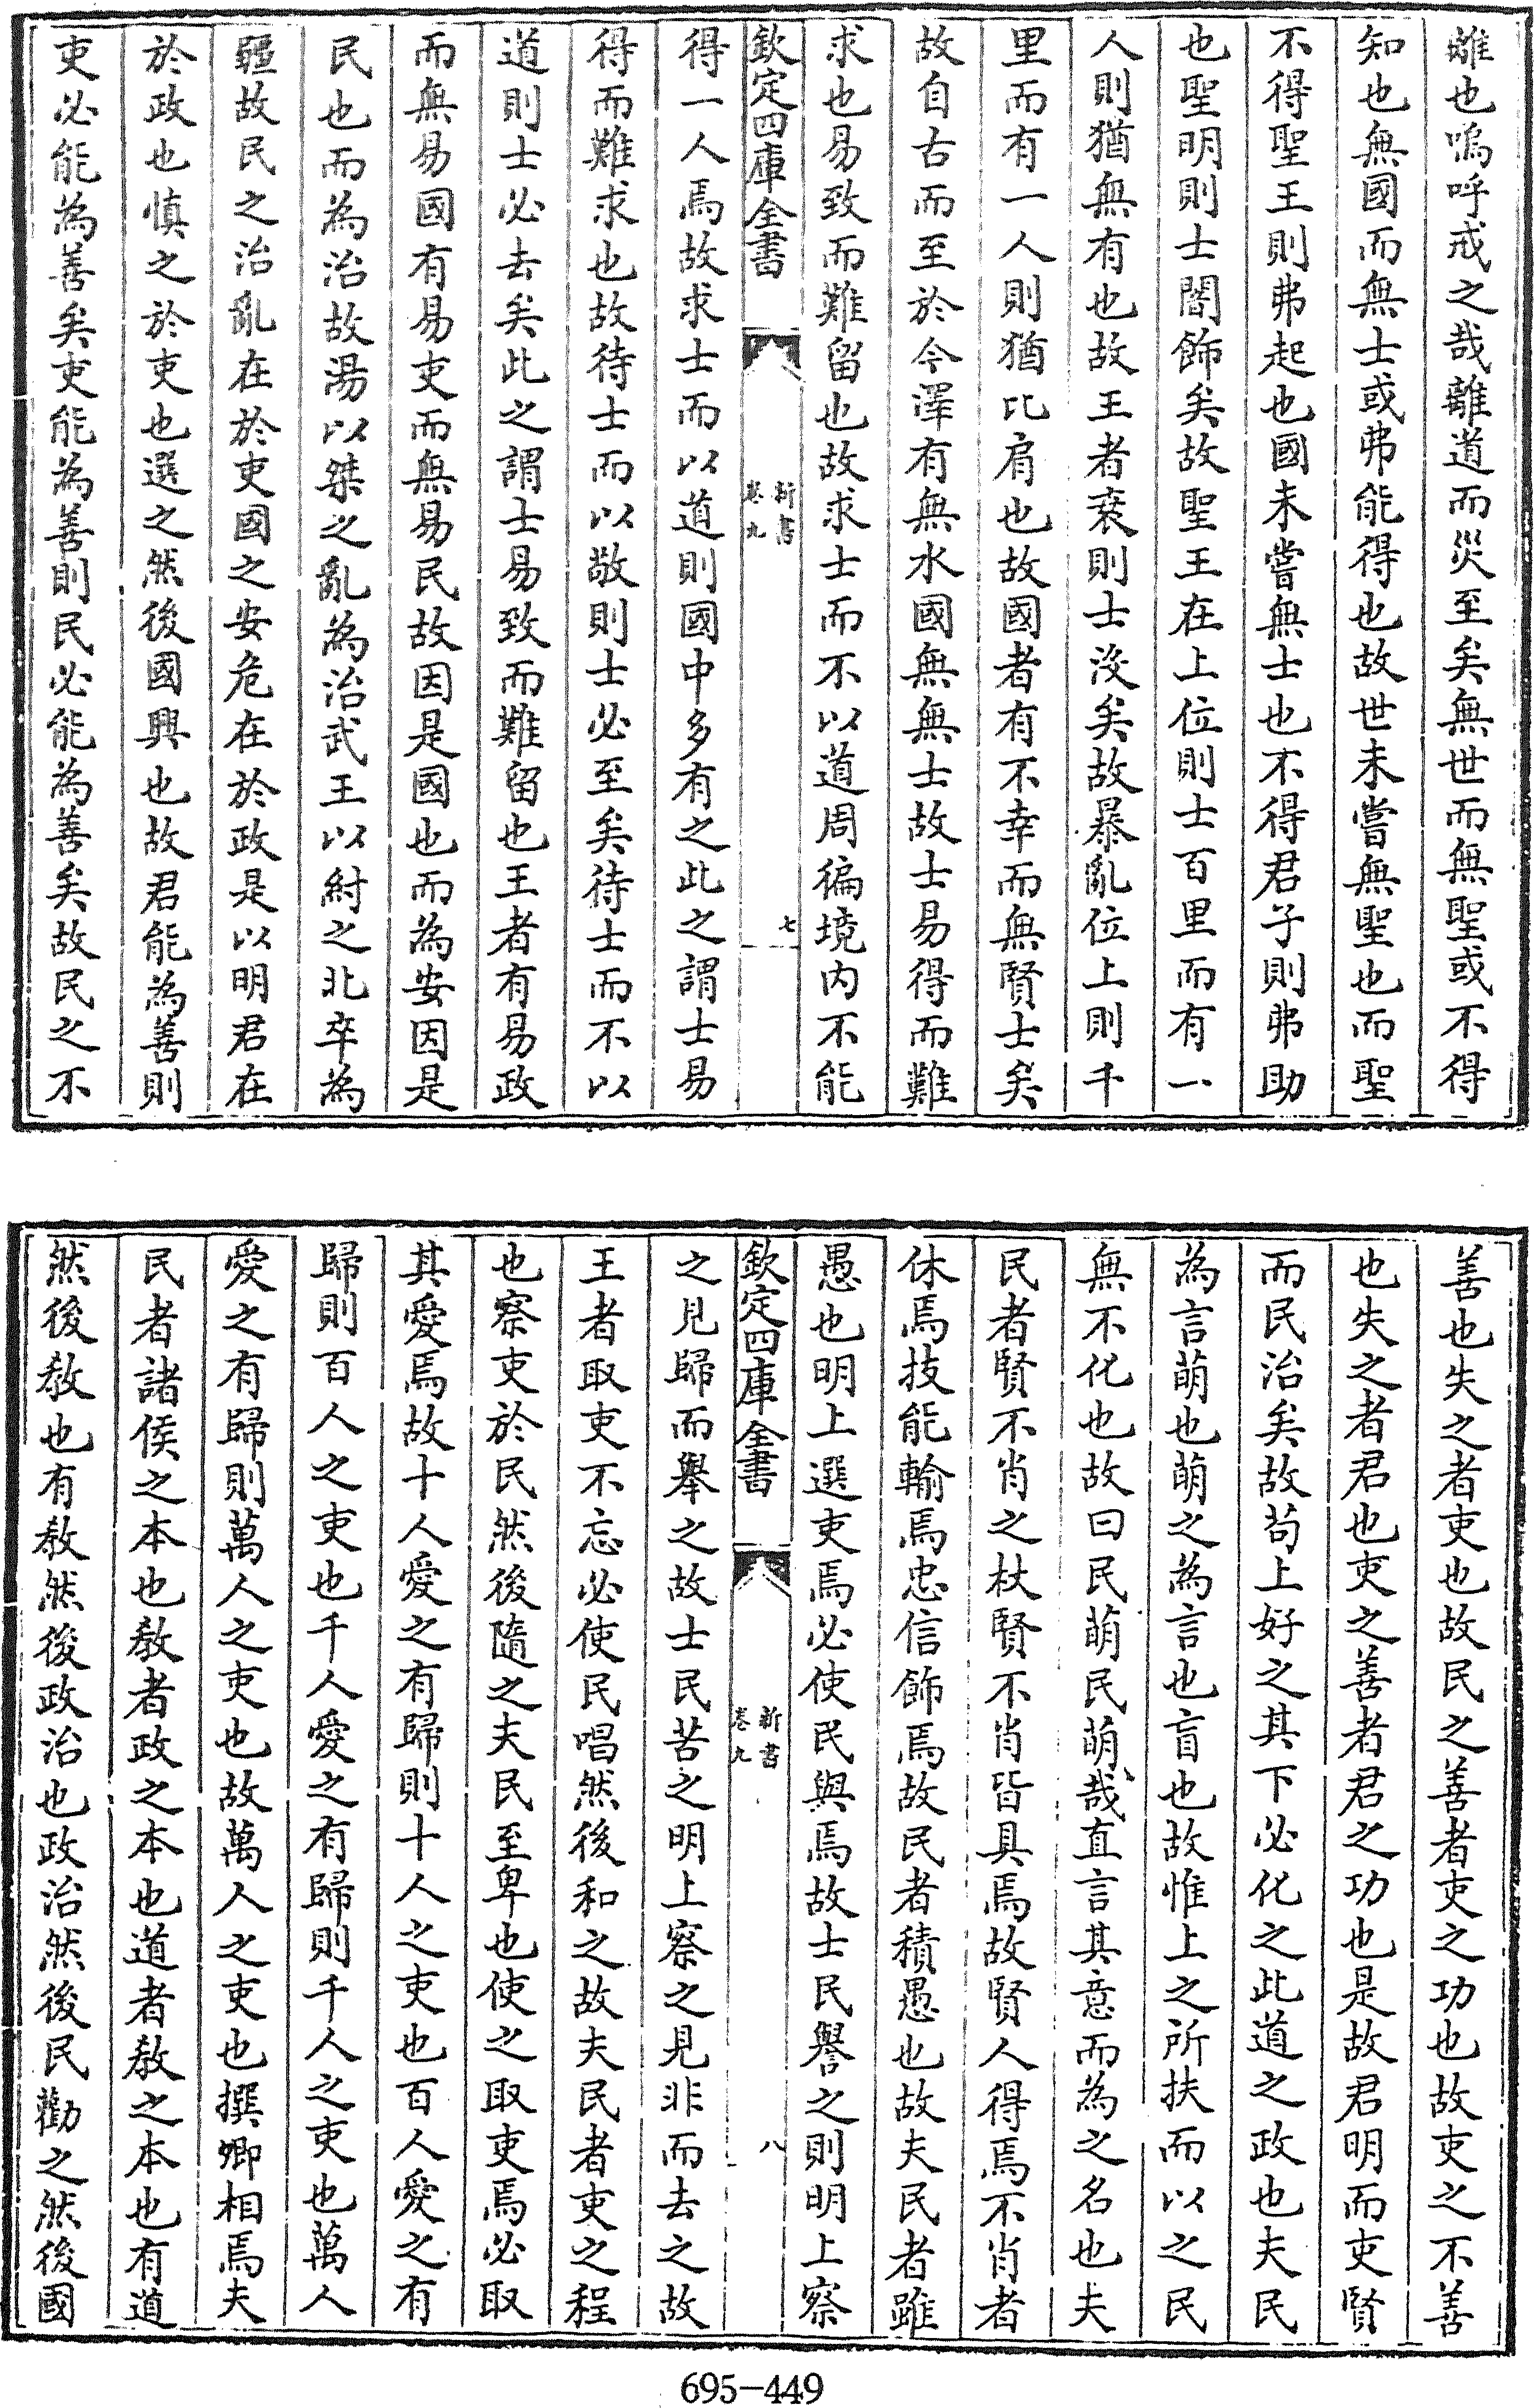 離也嗚呼戒之哉離道而災至矣無世而無聖或不得
知也無國而無士或弗能得也故世未嘗無聖也而聖
不得聖王則弗起也國未嘗無士也不得君子則弗助
也聖明則士闇飾矣故聖王在上位則士百里而有一
人則猶無有也故王者衰則士沒矣故暴亂位上則千
里而有一人則猶比肩也故國者有不幸而無賢士矣
故自古而至於今澤有無水國無無士故士易得而難
求也易致而難留也故求士而不以道周徧境內不能
欽定四庫全書
新書
卷九
七
得一人焉故求士而以道則國中多有之此之謂士易
得而難求也故待士而以敬則士必至矣待士而不以
道則士必去矣此之謂士易致而難留也王者有易政
而無易國有易吏而無易民故因是國也而為安因是
民也而為治故湯以桀之亂為治武王以紂之北卒為
疆故民之治亂在於吏國之安危在於政是以明君在
於政也慎之於吏也選之然後國興也故君能為善則
吏必能為善矣吏能為善則民必能為善矣故民之不
善也失之者吏也故民之善者吏之功也故吏之不善
也失之者君也吏之善者君之功也是故君明而吏賢
而民治矣故苟上好之其下必化之此道之政也夫民
為言萌也萌之為言也盲也故惟上之所扶而以之民
無不化也故曰民萌民萌哉直言其意而為之名也夫
民者賢不肖之杖賢不肖皆具焉故賢人得焉不肖者
休焉技能輸焉忠信飾焉故民者積愚也故夫民者雖
愚也明上選吏焉必使民與焉故士民譽之則明上察
欽定四庫全書
新書
卷九
八
之見歸而舉之故士民苦之明上察之見非而去之故
王者取吏不忘必使民唱然後和之故夫民者吏之程
也察吏於民然後隨之夫民至卑也使之取吏焉必取
其愛焉故十人愛之有歸則十人之吏也百人愛之有
歸則百人之吏也千人愛之有歸則千人之吏也萬人
愛之有歸則萬人之吏也故萬人之吏也撰卿相焉夫
民者諸侯之本也教者政之本也道者教之本也有道
然後教也有教然後政治也政治然後民勸之然後國
695-449